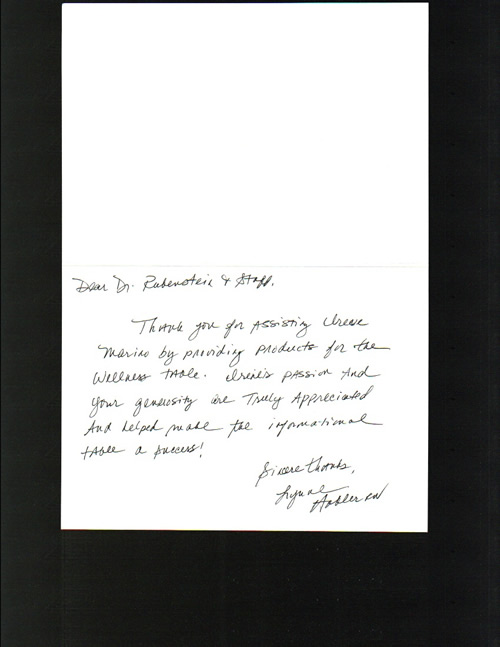 Dear Dr. Rubenstein & Staff.
Thank you for Assisting Irene
Marino by providing products for the
Wellness table. Irene's passion And
Your generosity are Truly Appreciated
And helped make the informational
table a success!
Sincere thanks,
Lynne
RN